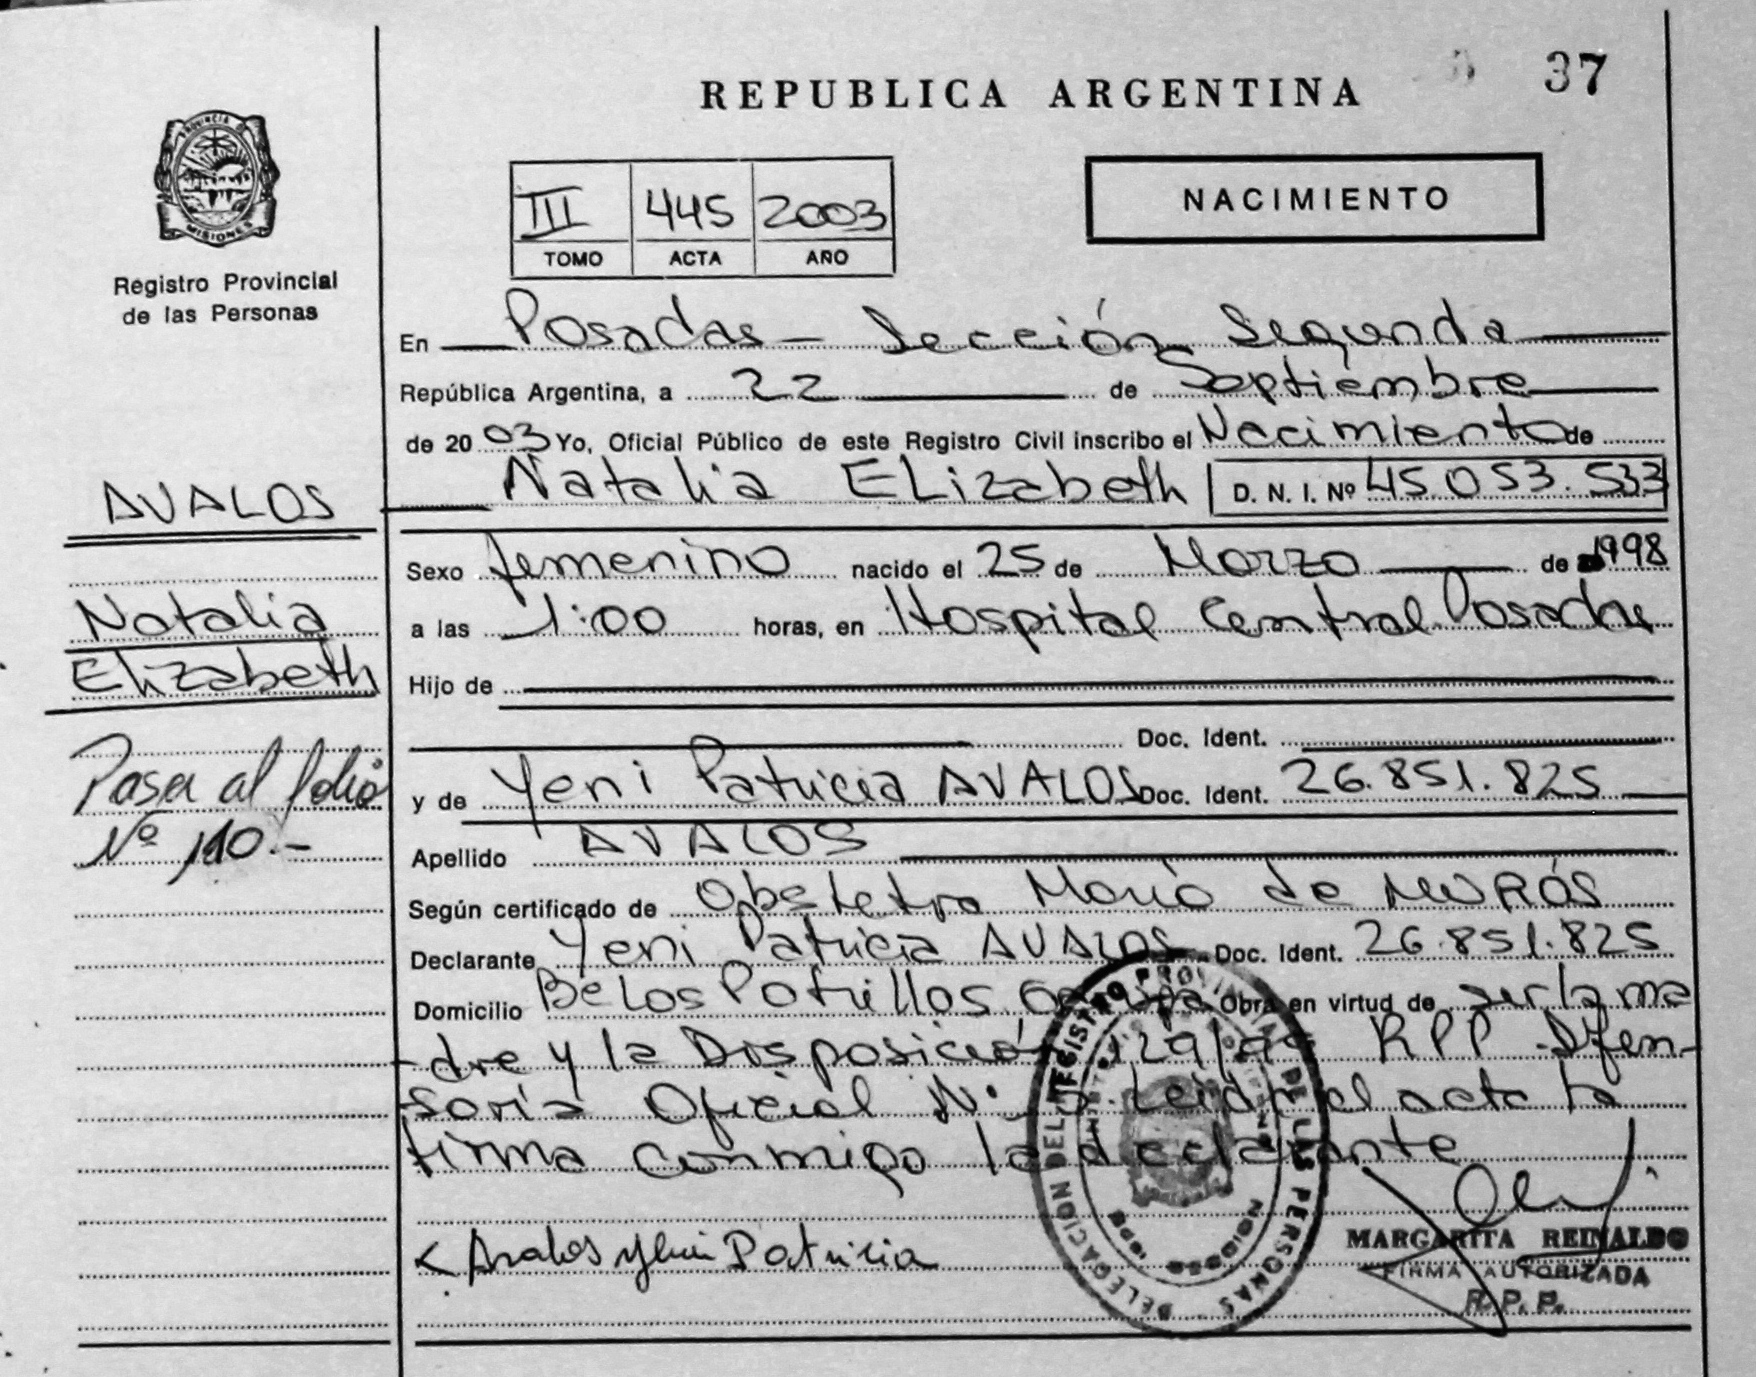 37
REPUBLICA ARGENTINA
PROVINCIA DE
MISIONES
Registro Provincial
de las Personas
III 445 2003
TOMO ACTA AÑO
NACIMIENTO
En Posadas - Sección Segunda
República Argentina, a 22 de Septiembre
de 20 03 Yo, Oficial Público de este Registro Civil inscribo el Nacimiento de
Natalia Elizabeth D. N. I. Nº 45.053.533
AVALOS
Sexo femenino nacido el 25 de Marzo de 1998
Natalia
a las 1:00 horas, en Hospital Central Posadas
Elizabeth
Hijo de
Doc. Ident.
Pasa al folio
y de Yeni Patricia AVALOS Doc. Ident. 26.851.825
Nº 110.-
Apellido AVALOS
Según certificado de Obstetra María de
Declarante Yeni Patricia AVALOS Doc. Ident. 26.851.825
Domicilio Obra en virtud de ser la ma
dre y la Disposición 129/99 RPP Dfen-
soría Oficial Nº Leída el acta la
firma conmigo la declarante
Avalos Yeni Patricia
DELEGACION DEL REGISTRO PROVINCIAL DE LAS PERSONAS
MARGARITA REINALDO
FIRMA AUTORIZADA
R. P. P.